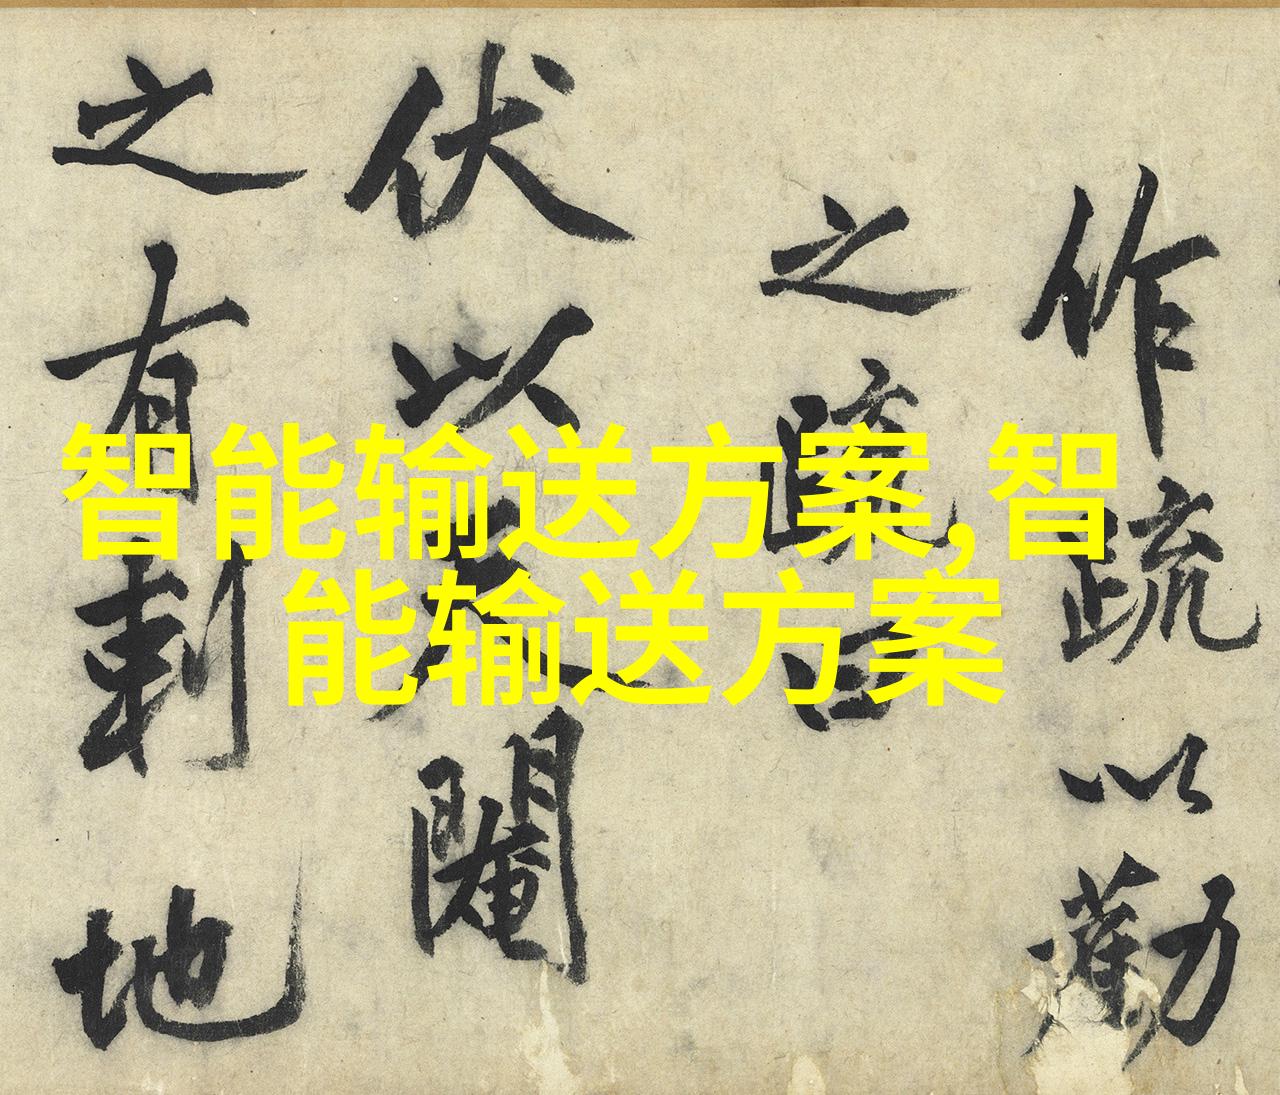 作疏以勸
之疏曰
伏以天閹
之有刺地
智能输送方案,智
能输送方案